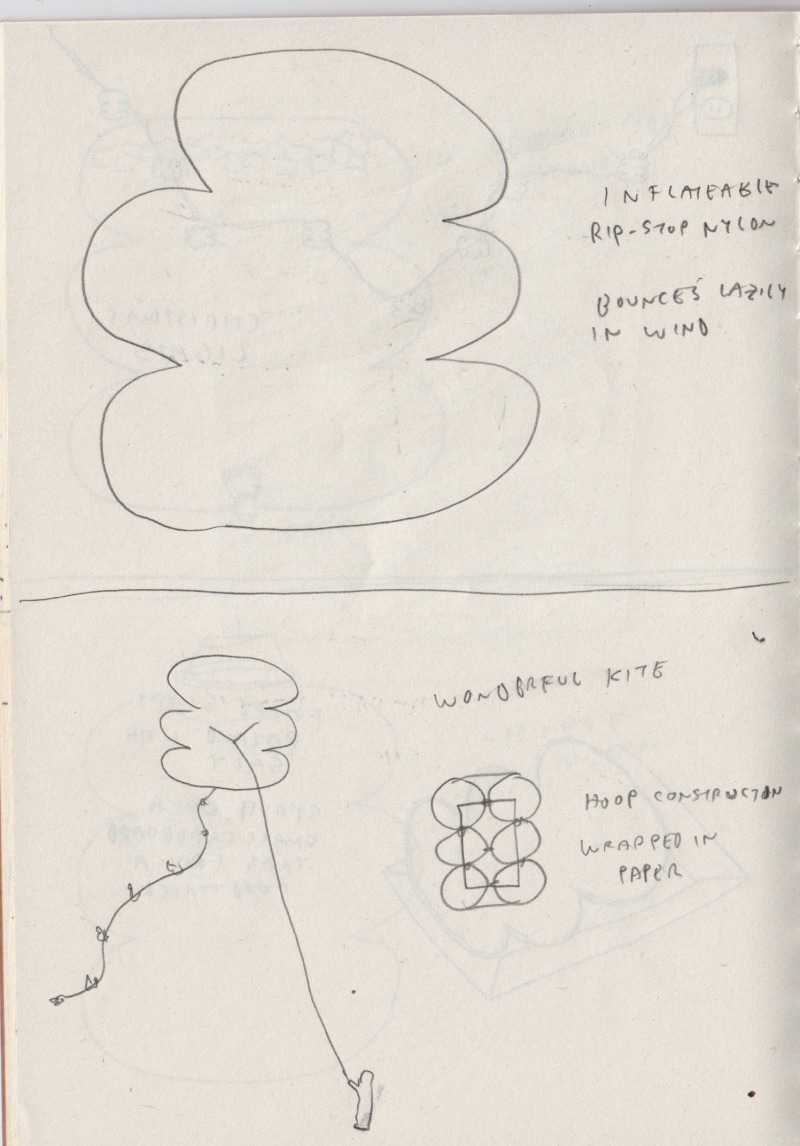 INFLATEABLE
RIP-STOP NYLON
BOUNCES LAZILY
IN WIND
WONDERFUL KITE
HOOP CONSTRUCTON
WRAPPED IN
PAPER
CHRISTMAS
LIGHTS